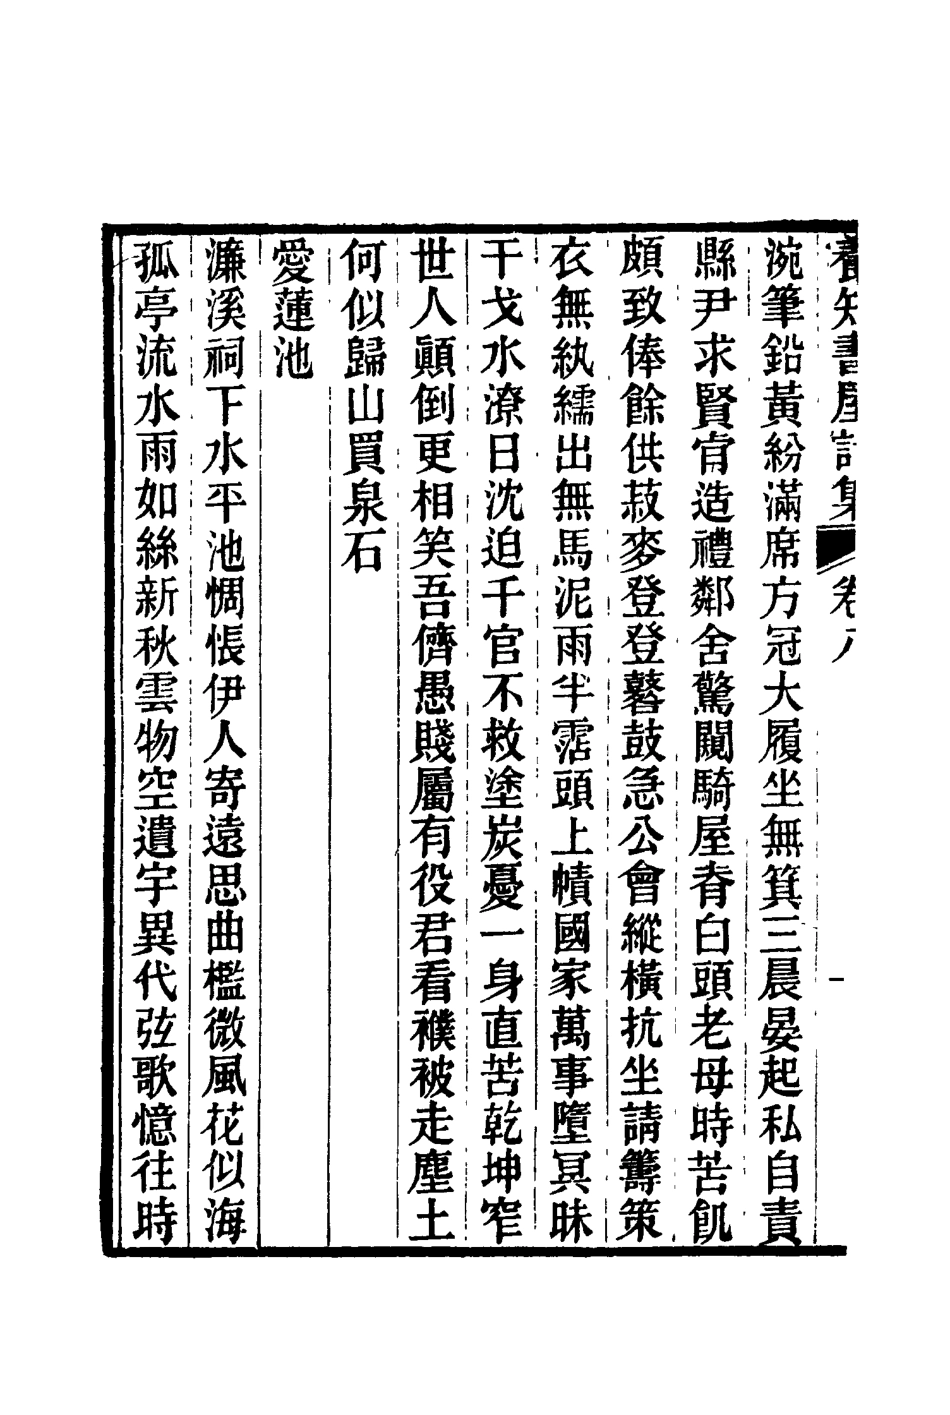 養知書屋詩集 卷八 一
涴筆鉛黃紛滿席方冠大履坐無箕三晨晏起私自責
縣尹求賢肯造禮鄰舍驚闚騎屋脊白頭老母時苦飢
頗致俸餘供菽麥登登鼛鼓急公會縱橫抗坐請籌策
衣無紈繻出無馬泥雨半霑頭上幘國家萬事墮冥昧
干戈水潦日沈迫千官不救塗炭憂一身直苦乾坤窄
世人顚倒更相笑吾儕愚賤屬有役君看襆被走塵土
何似歸山買泉石
愛蓮池
濂溪祠下水平池惆悵伊人寄遠思曲檻微風花似海
孤亭流水雨如絲新秋雲物空遺宇異代弦歌憶往時